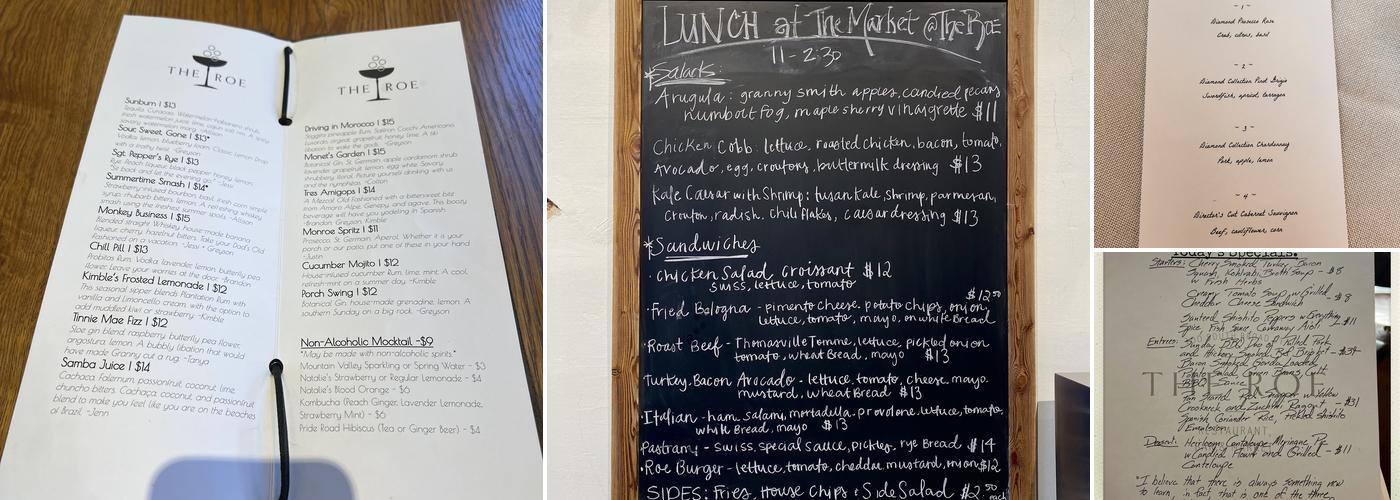 THE ROE
Sunburn | $13
Tequila, Curacao, Watermelon-habanero shrub,
fresh watermelon juice, lime, cajun salt rim. A spicy
savory watermelon margi. -Allison
Sour, Sweet, Gone | $13*
Vodka, lemon, blueberry foam. Classic Lemon Drop
with a frothy twist. -Greyson
Sgt. Pepper's Rye | $13
Rye, Peach liqueur, black pepper honey, lemon.
"Sit back and let the evening go." -Jess
Summertime Smash | $14*
Strawberry-infused bourbon, basil, fresh corn simple
syrup, rhubarb bitters, lemon. A refreshing whiskey
smash using the freshest summer spoils. -Allison
Monkey Business | $15
Blended straight Whiskey, house-made banana
liqueur, cherry, hazelnut bitters. Take your Dad's Old
Fashioned on a vacation. -Jess + Greyson
Chill Pill | $13
Probitas Rum, Vodka, lavender, lemon, butterfly pea
flower. Leave your worries at the door. -Brandon
Kimble's Frosted Lemonade | $12
This seasonal sipper blends Plantation Rum with
vanilla and limoncello cream, with the option to
add muddled kiwi or strawberry. -Kimble
Tinnie Mae Fizz | $12
Sloe gin blend, raspberry, butterfly pea flower,
angostura, lemon. A bubbly libation that would
have made Granny cut a rug. -Tanya
Samba Juice | $14
Cachaca, Falernum, passionfruit, coconut, lime,
chuncho bitters. Cachaça, coconut, and passionfruit
blend to make you feel like you are on the beaches
of Brazil. -Jenn
THE ROE
Driving in Morocco | $15
Siggins pineapple Rum, Saffron, Cocchi Americano,
Luxardo, orgeat, grapefruit, honey, lime. A tiki
libation to wake the gods. -Greyson
Monet's Garden | $15
Botanical Gin, St. Germain, apple cardamom shrub,
lavender, grapefruit, lemon, egg white. Savory,
shrubbery, floral. Picture yourself drinking with us
and the nymphaeas. -Colton
Tres Amigops | $14
A Mezcal Old Fashioned with a bittersweet bite
from Amaro Alpe, Genepy, and agave. This boozy
beverage will have you yodeling in Spanish.
-Brandon, Greyson, Kimble
Monroe Spritz | $11
Prosecco, St. Germain, Aperol. Whether it is your
porch or our patio, put one of these in your hand
-Justin
Cucumber Mojito | $12
House-infused cucumber Rum, lime, mint. A cool,
refresh-mint on a summer day. -Kimble
Porch Swing | $12
Botanical Gin, house-made grenadine, lemon. A
southern Sunday on a big rock. -Greyson
Non-Alcoholic Mocktail -$9
*May be made with non-alcoholic spirits.*
Mountain Valley Sparkling or Spring Water - $3
Natalie's Strawberry or Regular Lemonade - $4
Natalie's Blood Orange - $6
Kombucha (Peach Ginger, Lavender Lemonade,
Strawberry Mint) - $6
Pride Road Hibiscus (Tea or Ginger Beer) - $4
LUNCH at The Market @TheRoe
11 - 2:30
*Salads:
Arugula: granny smith apples, candied pecans
humbolt fog, maple sherry vinaigrette $11
Chicken Cobb: lettuce, roasted chicken, bacon, tomato,
Avocado, egg, croutons, buttermilk dressing $13
Kale Caesar with Shrimp: tuscan kale, shrimp, parmesan,
Crouton, radish, chili flakes, caesar dressing $13
*Sandwiches
· Chicken Salad Croissant $12
swiss, lettuce, tomato
· Fried Bologna - pimento cheese, potato chips, onion, $12.50
lettuce, tomato, mayo, on white Bread
· Roast Beef - Thomasville Tomme, lettuce, pickled onion
tomato, wheat Bread, mayo $13
Turkey, Bacon Avocado - lettuce, tomato, cheese, mayo,
mustard, wheat Bread $13
· Italian - ham, salami, mortadella, provolone, lettuce, tomato,
white Bread, mayo $13
Pastrami - swiss, special sauce, pickles, rye Bread $14
· Roe Burger - lettuce, tomato, cheddar, mustard, onion $12
SIDES: Fries, House Chips & Side Salad $2.50 each
- 1 -
Diamond Prosecco Rose
Crab, citrus, basil
- 2 -
Diamond Collection Pinot Grigio
Swordfish, apricot, tarragon
- 3 -
Diamond Collection Chardonnay
Pork, apple, lemon
- 4 -
Director's Cut Cabernet Sauvignon
Beef, cauliflower, corn
Today's Specials:
Starters: Cherry Smoked Turkey, Bacon
Squash, Kohlrabi, Broth Soup - $8
w/ Fresh Herbs
Creamy Tomato Soup w/ Grilled - $8
Cheddar Cheese Sandwich
Sauteed Shishito Peppers w/ Everything
Spice, Fish Sauce, Caraway Aioli - $11
Entrees: Sunday BBQ Duo of Pulled Pork
and Hickory Smoked Beef Brisket - $34
Potato Salad, Green Beans
BBQ Sauce
Pan Seared Red Snapper w/ Yellow
Crookneck and Zucchini Ragout - $31
Spanish Coriander Rice, Pickled Shishito
Emulsion
Dessert: Heirloom Cantaloupe Meringue Pie
w/ Candied Flower and Grilled - $11
Cantaloupe
THE ROE
RESTAURANT
"I believe that there is always something new
to learn, in fact that is one of the three